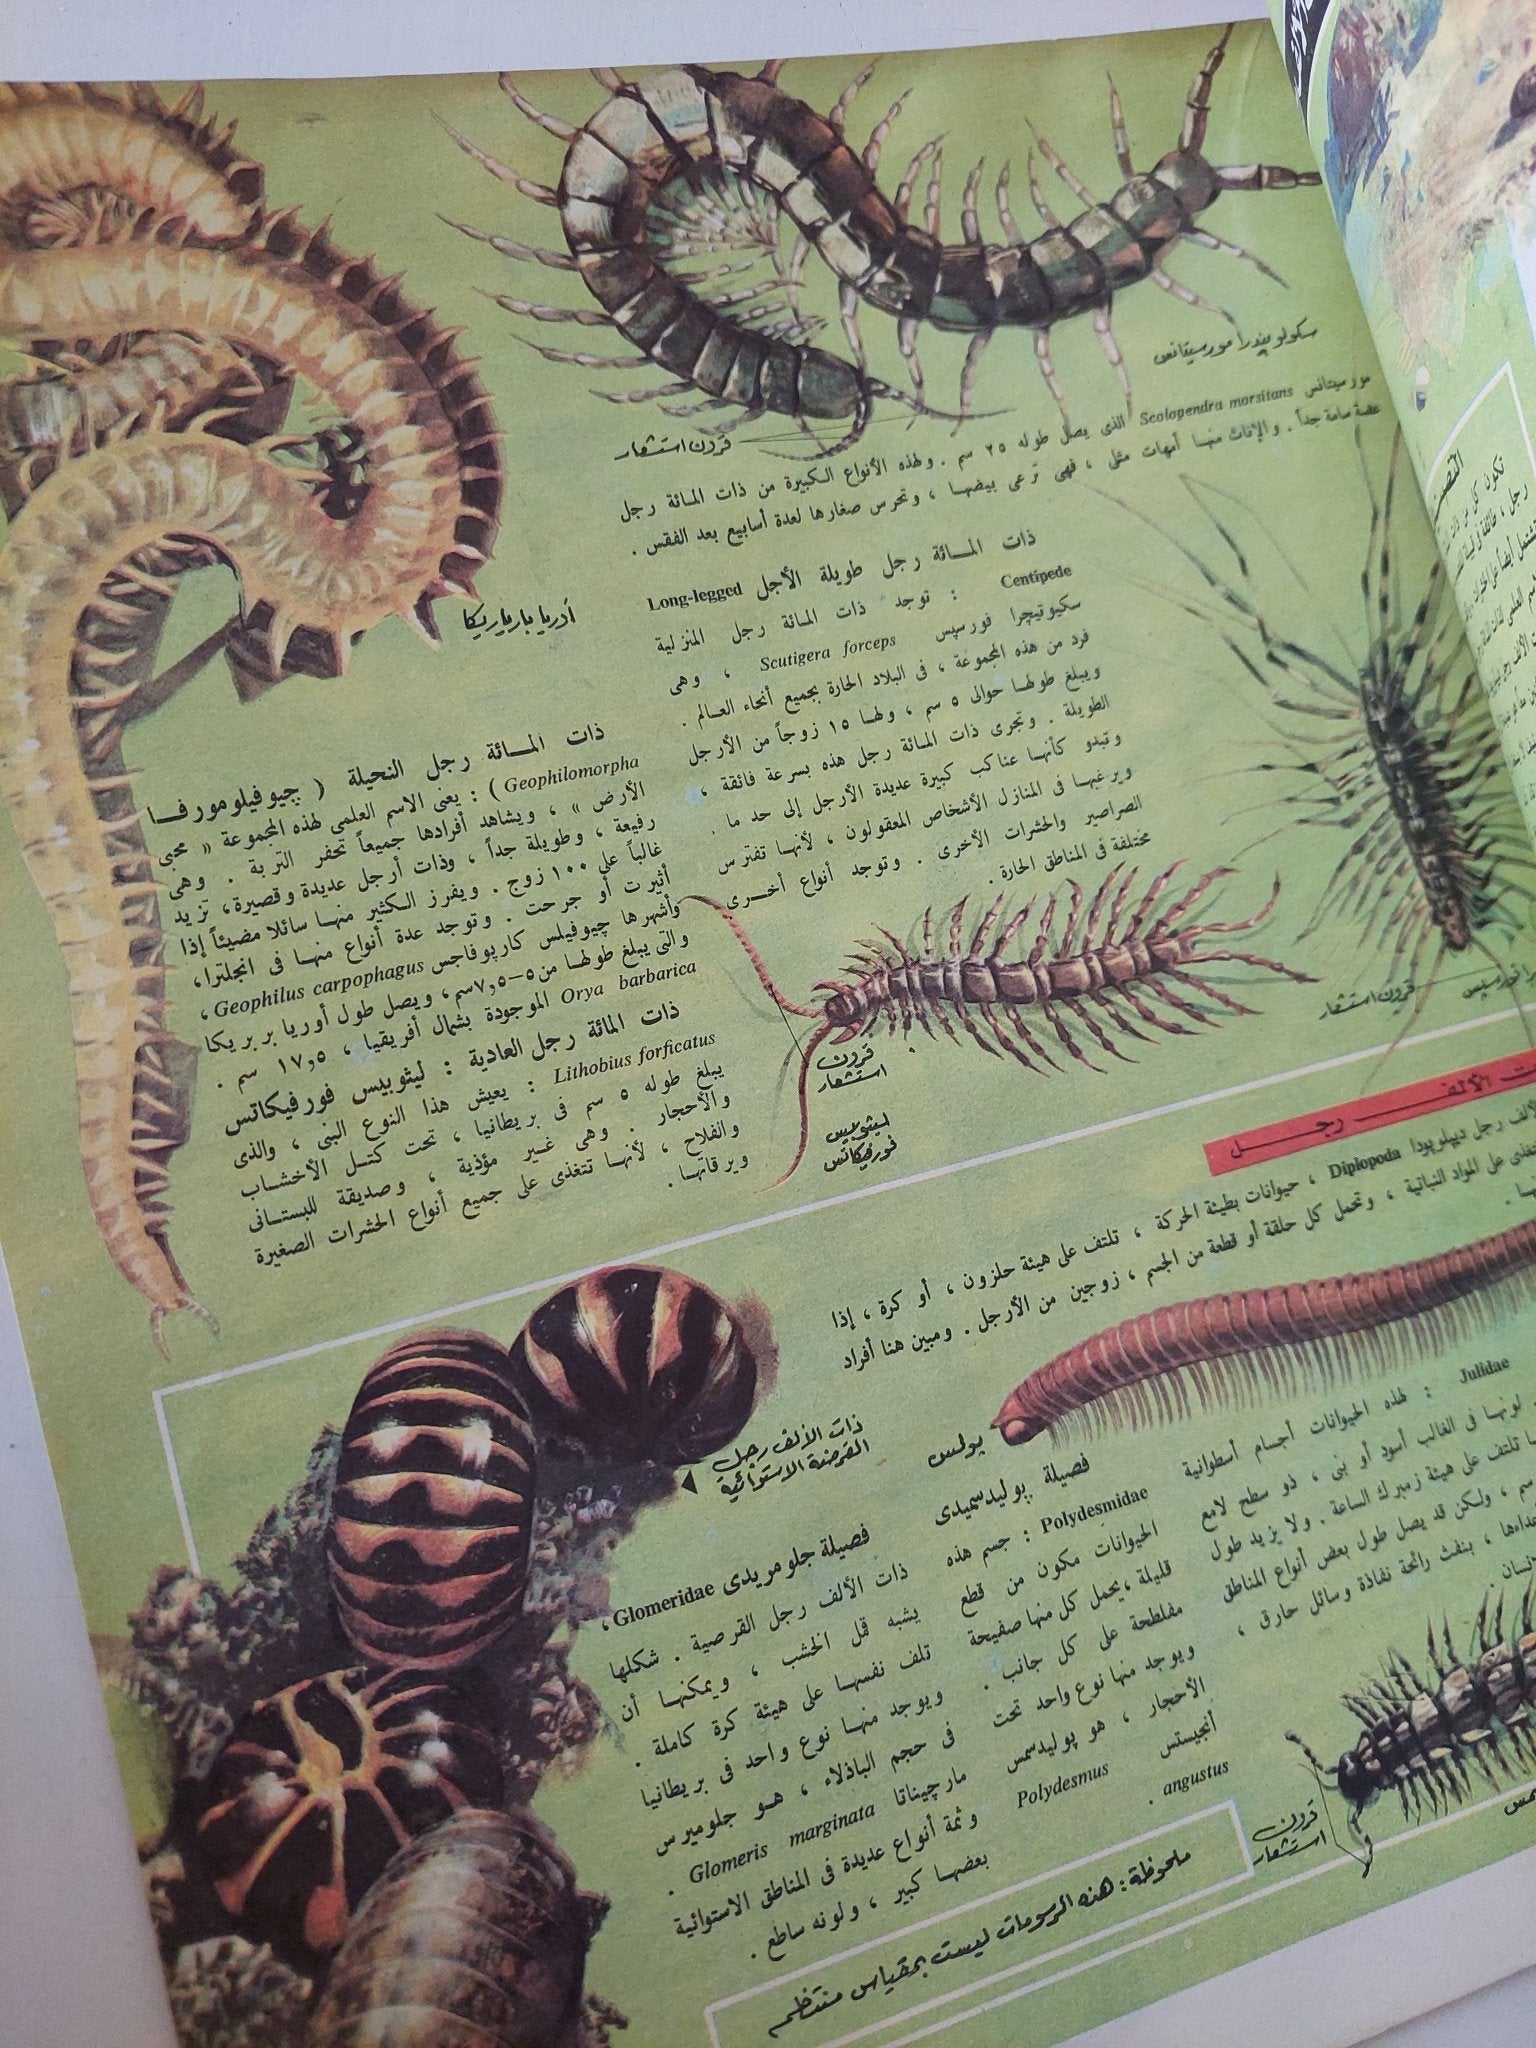 سكولوبيندرا مورسيتانس
مورسيتانس Scolopendra morsitans الذى يصل طوله ٢٥ سم . ولهذه الأنواع الكبيرة من ذات المائة رجل
عضة سامة جداً . والإناث منها أمهات مثلى ، فهى ترعى بيضها ، وتحرس صغارها لعدة أسابيع بعد الفقس .
قرون استشعار
ذات المائة رجل طويلة الأجل Long-legged
Centipede : توجد ذات المائة رجل المنزلية
سكيوتيچرا فورسپس Scutigera forceps ، وهى
فرد من هذه المجموعة ، فى البلاد الحارة بجميع أنحاء العالم .
ويبلغ طولها حوالى ٥ سم ، ولها ١٥ زوجاً من الأرجل
الطويلة . وتجرى ذات المائة رجل هذه بسرعة فائقة ،
وتبدو كأنها عناكب كبيرة عديدة الأرجل إلى حد ما .
ويرغبها فى المنازل الأشخاص المعقولون ، لأنها تفترس
الصراصير والحشرات الأخرى . وتوجد أنواع أخرى
مختلفة فى المناطق الحارة .
قرون استشعار
أدريا بارباريكا
ذات المائة رجل النحيلة ( چيوفيلومورفا
Geophilomorpha ) : يعنى الاسم العلمى لهذه المجموعة « محبى
الأرض » ، ويشاهد أفرادها جميعاً تحفر التربة . وهى
رفيعة ، وطويلة جداً ، وذات أرجل عديدة وقصيرة ، تزيد
غالباً على ١٠٠ زوج . ويفرز الكثير منها سائلا مضيئاً إذا
أثيرت أو جرحت . وتوجد عدة أنواع منها فى انجلترا ،
وأشهرها چيوفيلس كارپوفاجس Geophilus carpophagus ،
والتى يبلغ طولها من ٥–٧,٥سم ، ويصل طول أوريا بربريكا
Orya barbarica الموجودة بشمال أفريقيا ، ١٧,٥ سم .
ذات المائة رجل العادية : ليثوبيس فورفيكاتس
Lithobius forficatus : يعيش هذا النوع البنى ، والذى
يبلغ طوله ٥ سم فى بريطانيا ، تحت كتل الأخشاب
والأحجار . وهى غير مؤذية ، وصديقة للبستانى
والفلاح ، لأنها تتغذى على جميع أنواع الحشرات الصغيرة
ويرقاتها .
قرون
استشعار
ليثوبيس
فورفيكاتس
الألف رجل
الألف رجل ديپلوپودا Diplopoda ، حيوانات بطيئة الحركة ، تلتف على هيئة حلزون ، أو كرة ، إذا
على المواد النباتية ، وتحمل كل حلقة أو قطعة من الجسم ، زوجين من الأرجل . ومبين هنا أفراد
يولس
Julidae : لهذه الحيوانات أجسام أسطوانية
لونها فى الغالب أسود أو بنى ، ذو سطح لامع
تلتف على هيئة زمبرك الساعة . ولا يزيد طول
سم ، ولكن قد يصل طول بعض أنواع المناطق
بنفث رائحة نفاذة وسائل حارق ،
فصيلة پوليدسميدى
Polydesmidae : جسم هذه
الحيوانات مكون من قطع
قليلة ، يحمل كل منها صفيحة
مفلطحة على كل جانب .
ويوجد منها نوع واحد تحت
الأحجار ، هو پوليدسمس
أنجيستس Polydesmus
angustus .
ذات الألف رجل
القرصنة الاستوائية
فصيلة جلومريدى Glomeridae ،
ذات الألف رجل القرصية . شكلها
يشبه قمل الخشب ، ويمكنها أن
تلف نفسها على هيئة كرة كاملة .
ويوجد منها نوع واحد فى بريطانيا
فى حجم الباذلاء ، هو جلوميرس
مارچيناتا Glomeris marginata .
وثمة أنواع عديدة فى المناطق الاستوائية
بعضها كبير ، ولونه ساطع .
قرون
استشعار
ملحوظة : هذه الرسومات ليست بمقياس منتظم